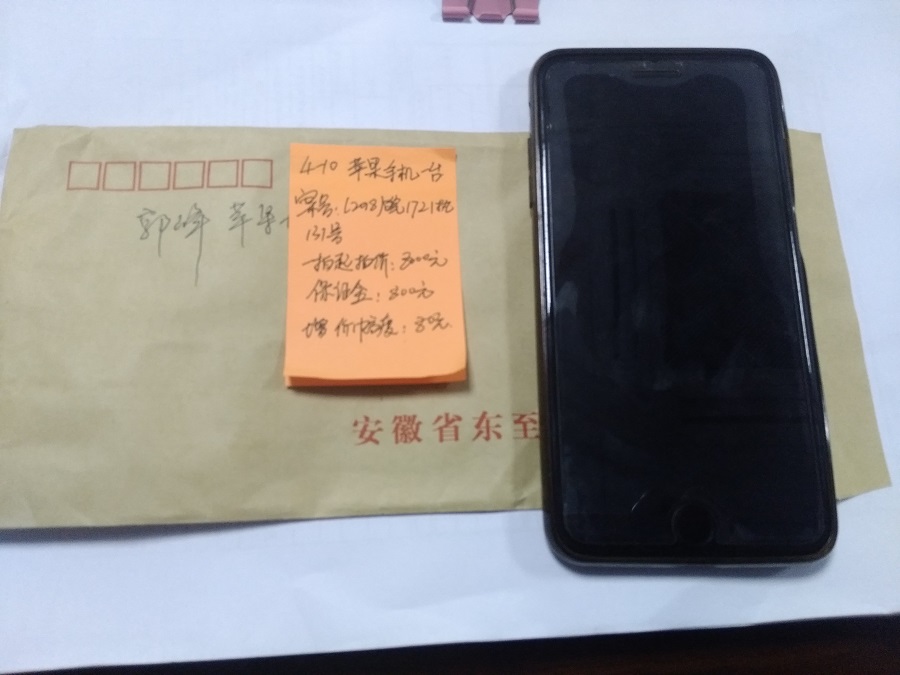 郭峰 苹果
4-10 苹果手机一台
案号:(2018)皖1721执
131号
一拍起拍价:800元
保证金:800元
增价幅度:80元
安徽省东至